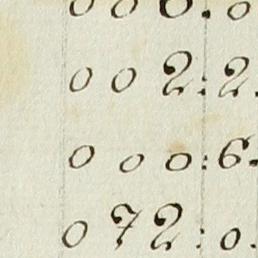 0 0 0. 0
0 0 2: 2.
0 0 0: 6.
0 72: 0.